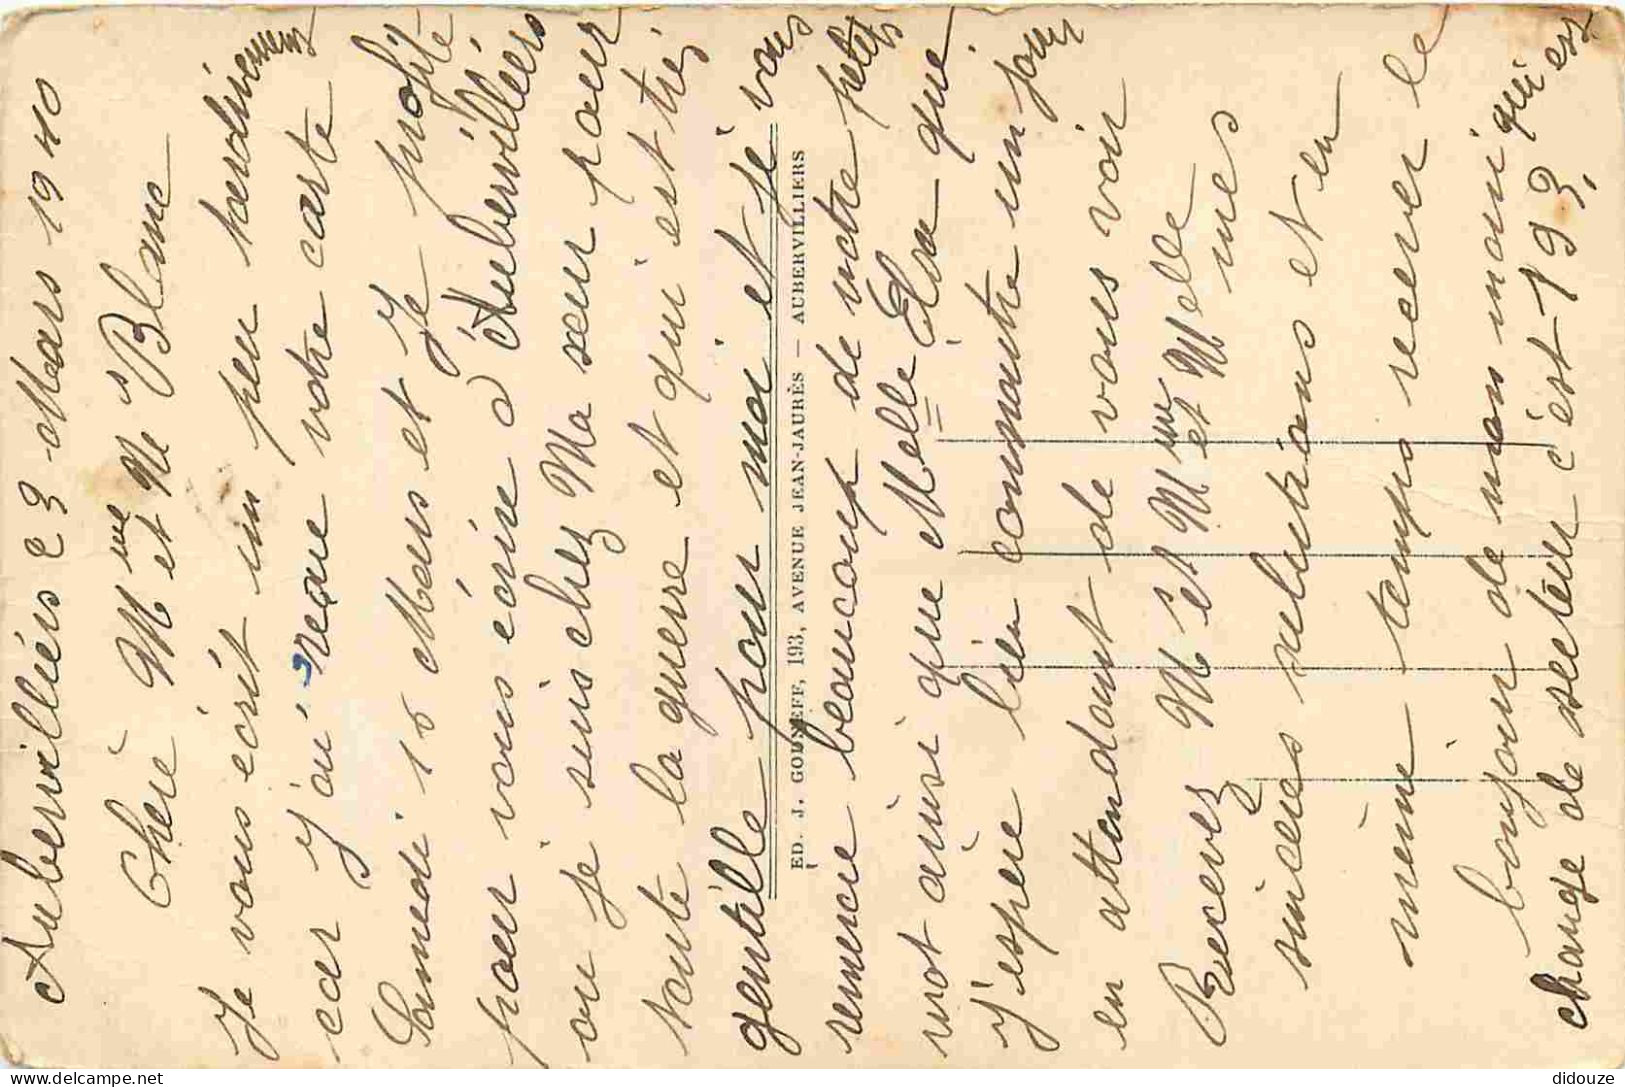 Aubervilliérs 23 Mars 1940
Cheré Mme et Mr Blanc
Je vous écrit un peu tardivement
car j'ai recue votre carte
Samedi 16 Mars et je profite
pour vous écrire a Aubervilliérs
ou je suis chez Ma seur pour
toute la guerre et qui est très
gentille pour moi et je vous
remercie beaucoup de votre petits
mot ainsi que Melle Elva que
j'espere bien connaitre un jour
en attendant de vous voir
Recevez M et Mme et Melle mes
sinceres salutations et en
même temps recever le
bonjour de mon mari qui est
change de secteur c'est 193.
ED. J. GOUSSEFF, 193, AVENUE JEAN-JAURÈS — AUBERVILLIERS
didouze